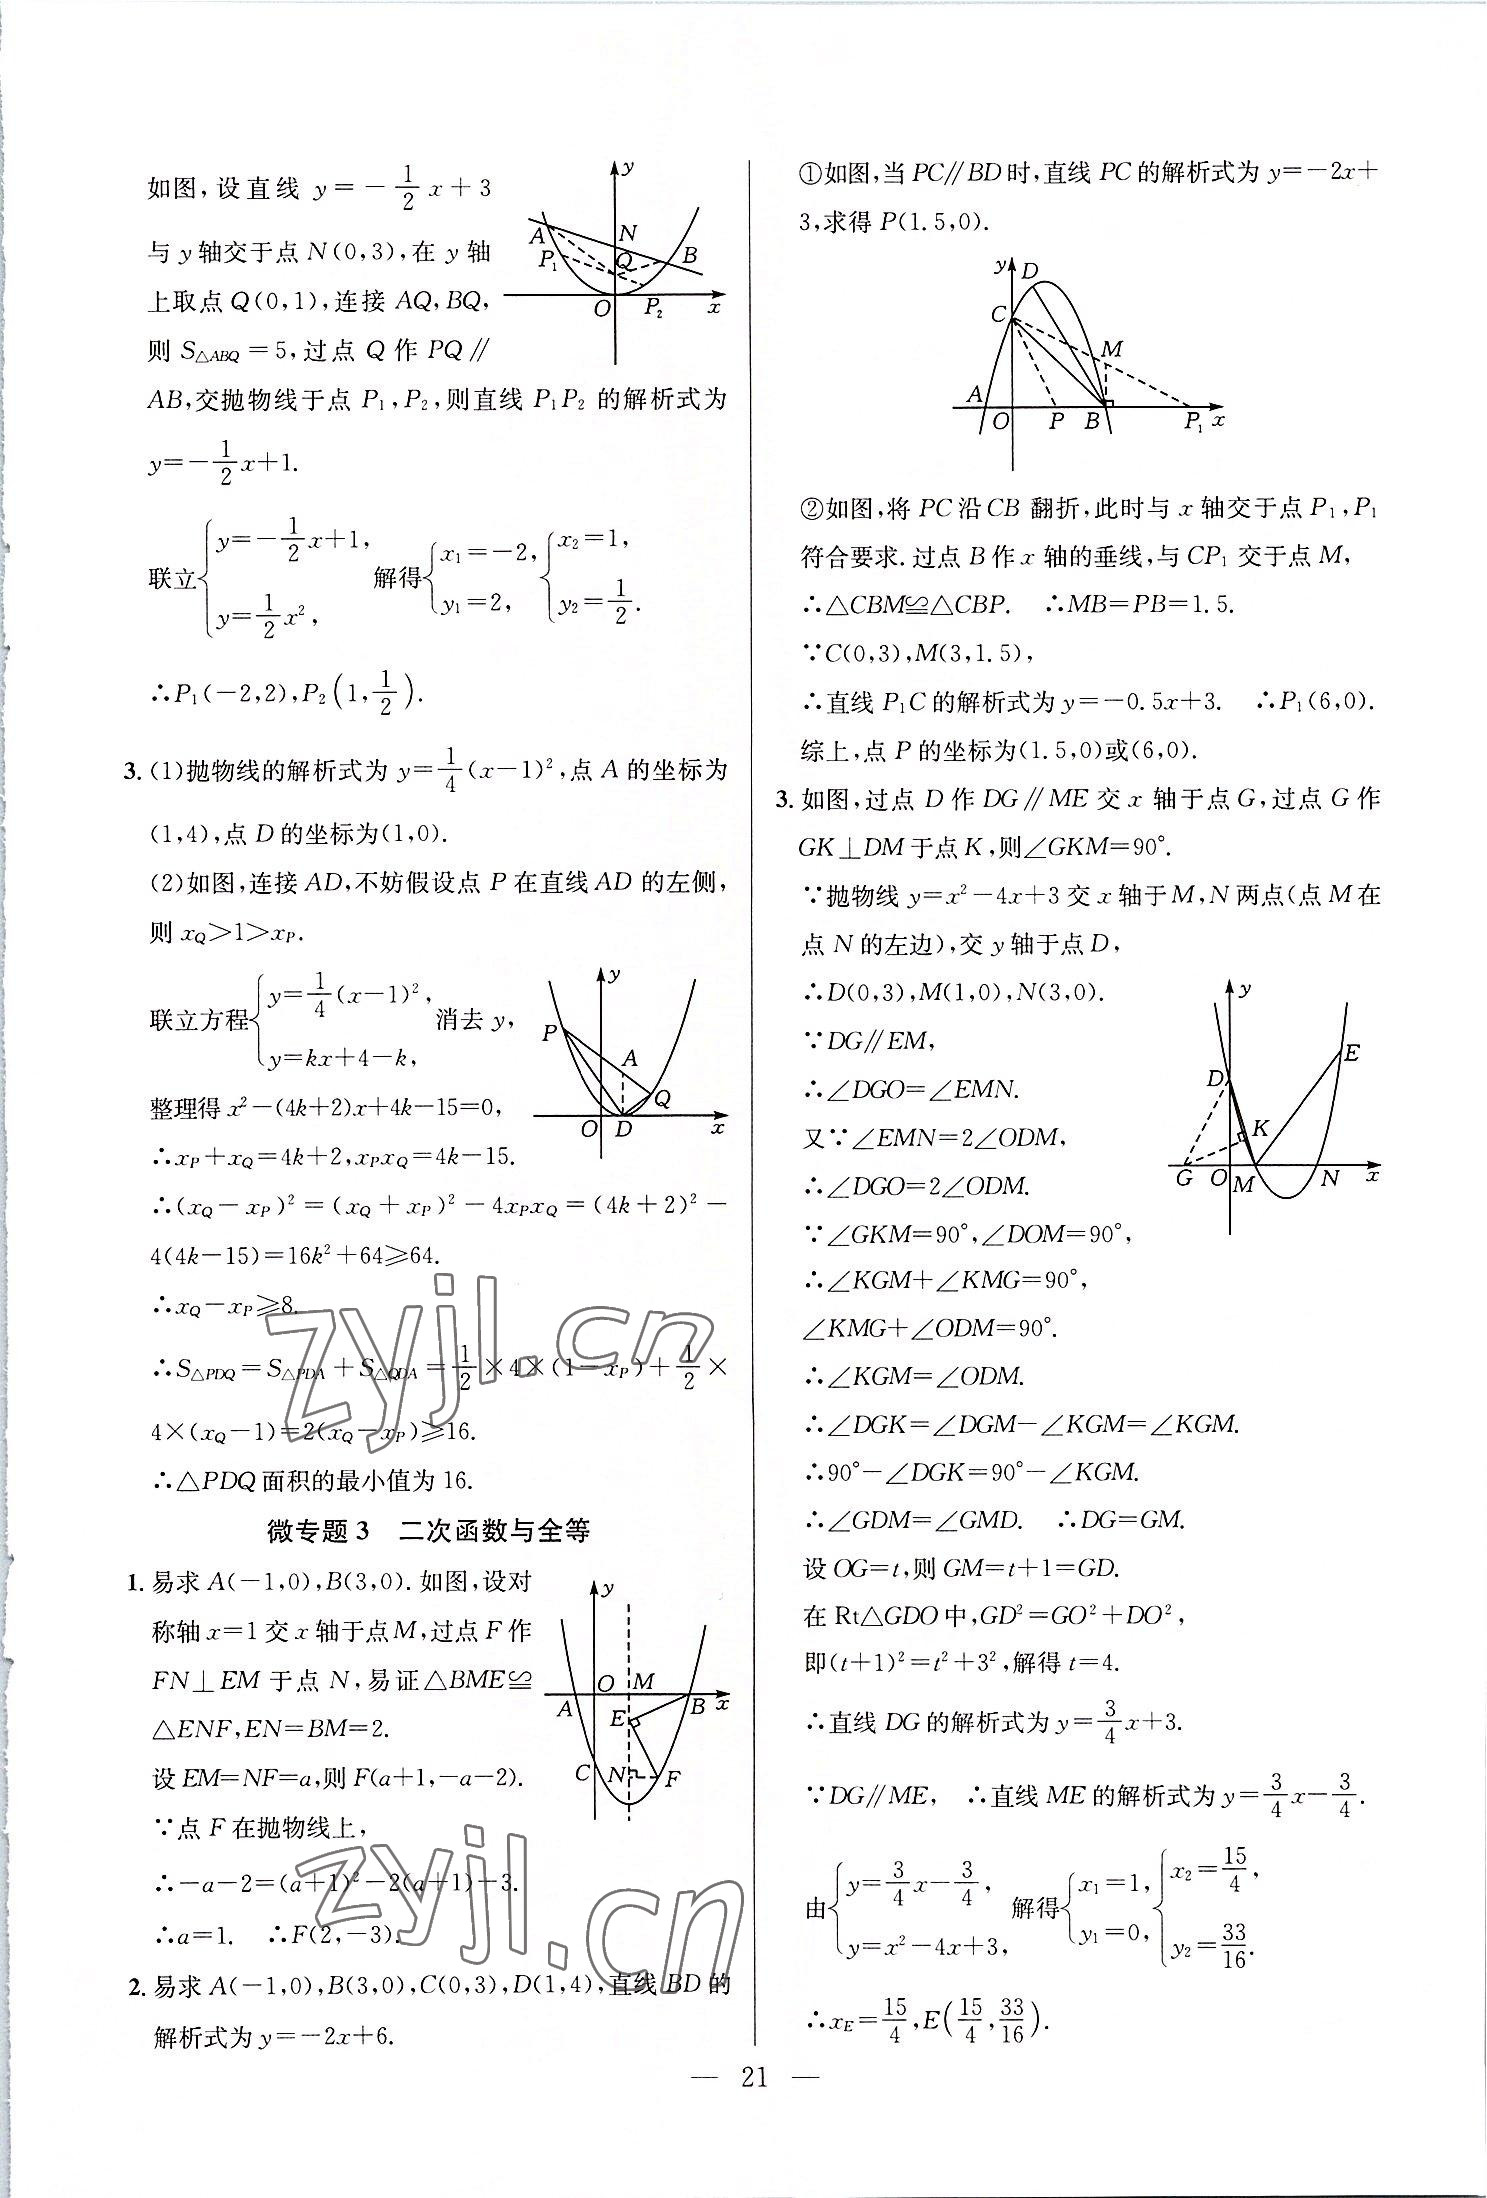 如图,设直线 y=-1/2x+3
与y轴交于点N(0,3),在y轴
上取点Q(0,1),连接AQ,BQ,
则S△ABQ=5,过点Q作PQ∥
AB,交抛物线于点P₁,P₂,则直线P₁P₂的解析式为
y=-1/2x+1.
联立{y=-1/2x+1, y=1/2x², 解得{x₁=-2, y₁=2, {x₂=1, y₂=1/2.
∴P₁(-2,2),P₂(1,1/2).
y
A
N
P₁
Q
B
O
P₂
x
3.(1)抛物线的解析式为y=1/4(x-1)²,点A的坐标为
(1,4),点D的坐标为(1,0).
(2)如图,连接AD,不妨假设点P在直线AD的左侧,
则xQ>1>xP.
联立方程{y=1/4(x-1)², y=kx+4-k, 消去y,
整理得x²-(4k+2)x+4k-15=0,
∴xP+xQ=4k+2,xPxQ=4k-15.
∴(xQ-xP)²=(xQ+xP)²-4xPxQ=(4k+2)²-
4(4k-15)=16k²+64≥64.
∴xQ-xP≥8.
∴S△PDQ=S△PDA+S△QDA=1/2×4×(1-xP)+1/2×
4×(xQ-1)=2(xQ-xP)≥16.
∴△PDQ面积的最小值为16.
y
P
A
Q
O
D
x
微专题3 二次函数与全等
1.易求A(-1,0),B(3,0).如图,设对
称轴x=1交x轴于点M,过点F作
FN⊥EM于点N,易证△BME≌
△ENF,EN=BM=2.
设EM=NF=a,则F(a+1,-a-2).
∵点F在抛物线上,
∴-a-2=(a+1)²-2(a+1)-3.
∴a=1. ∴F(2,-3).
y
O
M
A
B
x
E
C
N
F
2.易求A(-1,0),B(3,0),C(0,3),D(1,4),直线BD的
解析式为y=-2x+6.
①如图,当PC∥BD时,直线PC的解析式为y=-2x+
3,求得P(1.5,0).
y
D
C
M
A
O
P
B
P₁
x
②如图,将PC沿CB翻折,此时与x轴交于点P₁,P₁
符合要求.过点B作x轴的垂线,与CP₁交于点M,
∴△CBM≌△CBP. ∴MB=PB=1.5.
∵C(0,3),M(3,1.5),
∴直线P₁C的解析式为y=-0.5x+3. ∴P₁(6,0).
综上,点P的坐标为(1.5,0)或(6,0).
3.如图,过点D作DG∥ME交x轴于点G,过点G作
GK⊥DM于点K,则∠GKM=90°.
∵抛物线y=x²-4x+3交x轴于M,N两点(点M在
点N的左边),交y轴于点D,
∴D(0,3),M(1,0),N(3,0).
∵DG∥EM,
∴∠DGO=∠EMN.
又∵∠EMN=2∠ODM,
∴∠DGO=2∠ODM.
∵∠GKM=90°,∠DOM=90°,
∴∠KGM+∠KMG=90°,
∠KMG+∠ODM=90°.
∴∠KGM=∠ODM.
∴∠DGK=∠DGM-∠KGM=∠KGM.
∴90°-∠DGK=90°-∠KGM.
∴∠GDM=∠GMD. ∴DG=GM.
设OG=t,则GM=t+1=GD.
在Rt△GDO中,GD²=GO²+DO²,
即(t+1)²=t²+3²,解得t=4.
∴直线DG的解析式为y=3/4x+3.
∵DG∥ME, ∴直线ME的解析式为y=3/4x-3/4.
由{y=3/4x-3/4, y=x²-4x+3, 解得{x₁=1, y₁=0, {x₂=15/4, y₂=33/16.
∴xE=15/4,E(15/4,33/16).
y
E
D
K
G
O
M
N
x
zyjl.cn
zyjl.cn
— 21 —